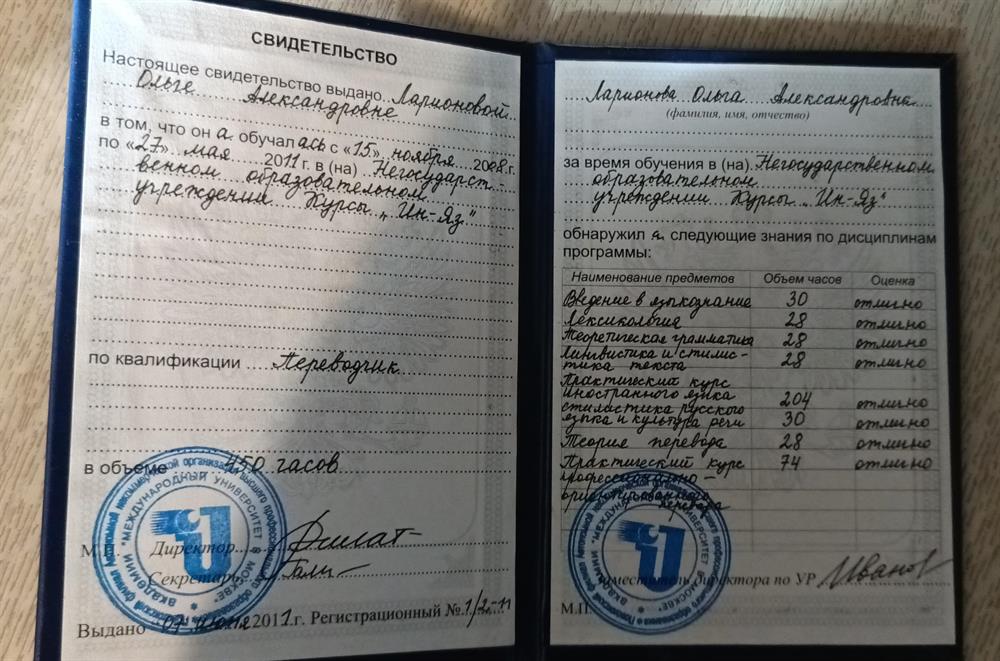 СВИДЕТЕЛЬСТВО
Настоящее свидетельство выдано Ларионовой
Ольге Александровне
в том, что он а обучал ась с «15» ноября 2008 г.
по «27» мая 2011 г. в (на) Негосударст-
венном образовательном
учреждении Курсы „Ин-Яз"
по квалификации Переводчик
в объеме 450 часов
М.П. Директор
Секретарь
Выдано 07 июня 2011 г. Регистрационный № 1/2-11
Ларионова Ольга Александровна
(фамилия, имя, отчество)
за время обучения в (на) Негосударственном
образовательном
учреждении Курсы „Ин-Яз"
обнаружил а следующие знания по дисциплинам
программы:
Наименование предметов Объем часов Оценка
Введение в языкознание 30 отлично
Лексикология 28 отлично
Теоретическая грамматика 28 отлично
Лингвистика и стилис-
тика текста 28 отлично
Практический курс
иностранного языка 204 отлично
стилистика русского
языка и культура речи 30 отлично
Теория перевода 28 отлично
Практический курс 74 отлично
профессионально-
ориентированного
перевода
Заместитель директора по УР Иванов
М.П.
"МЕЖДУНАРОДНЫЙ УНИВЕРСИТЕТ В МОСКВЕ"